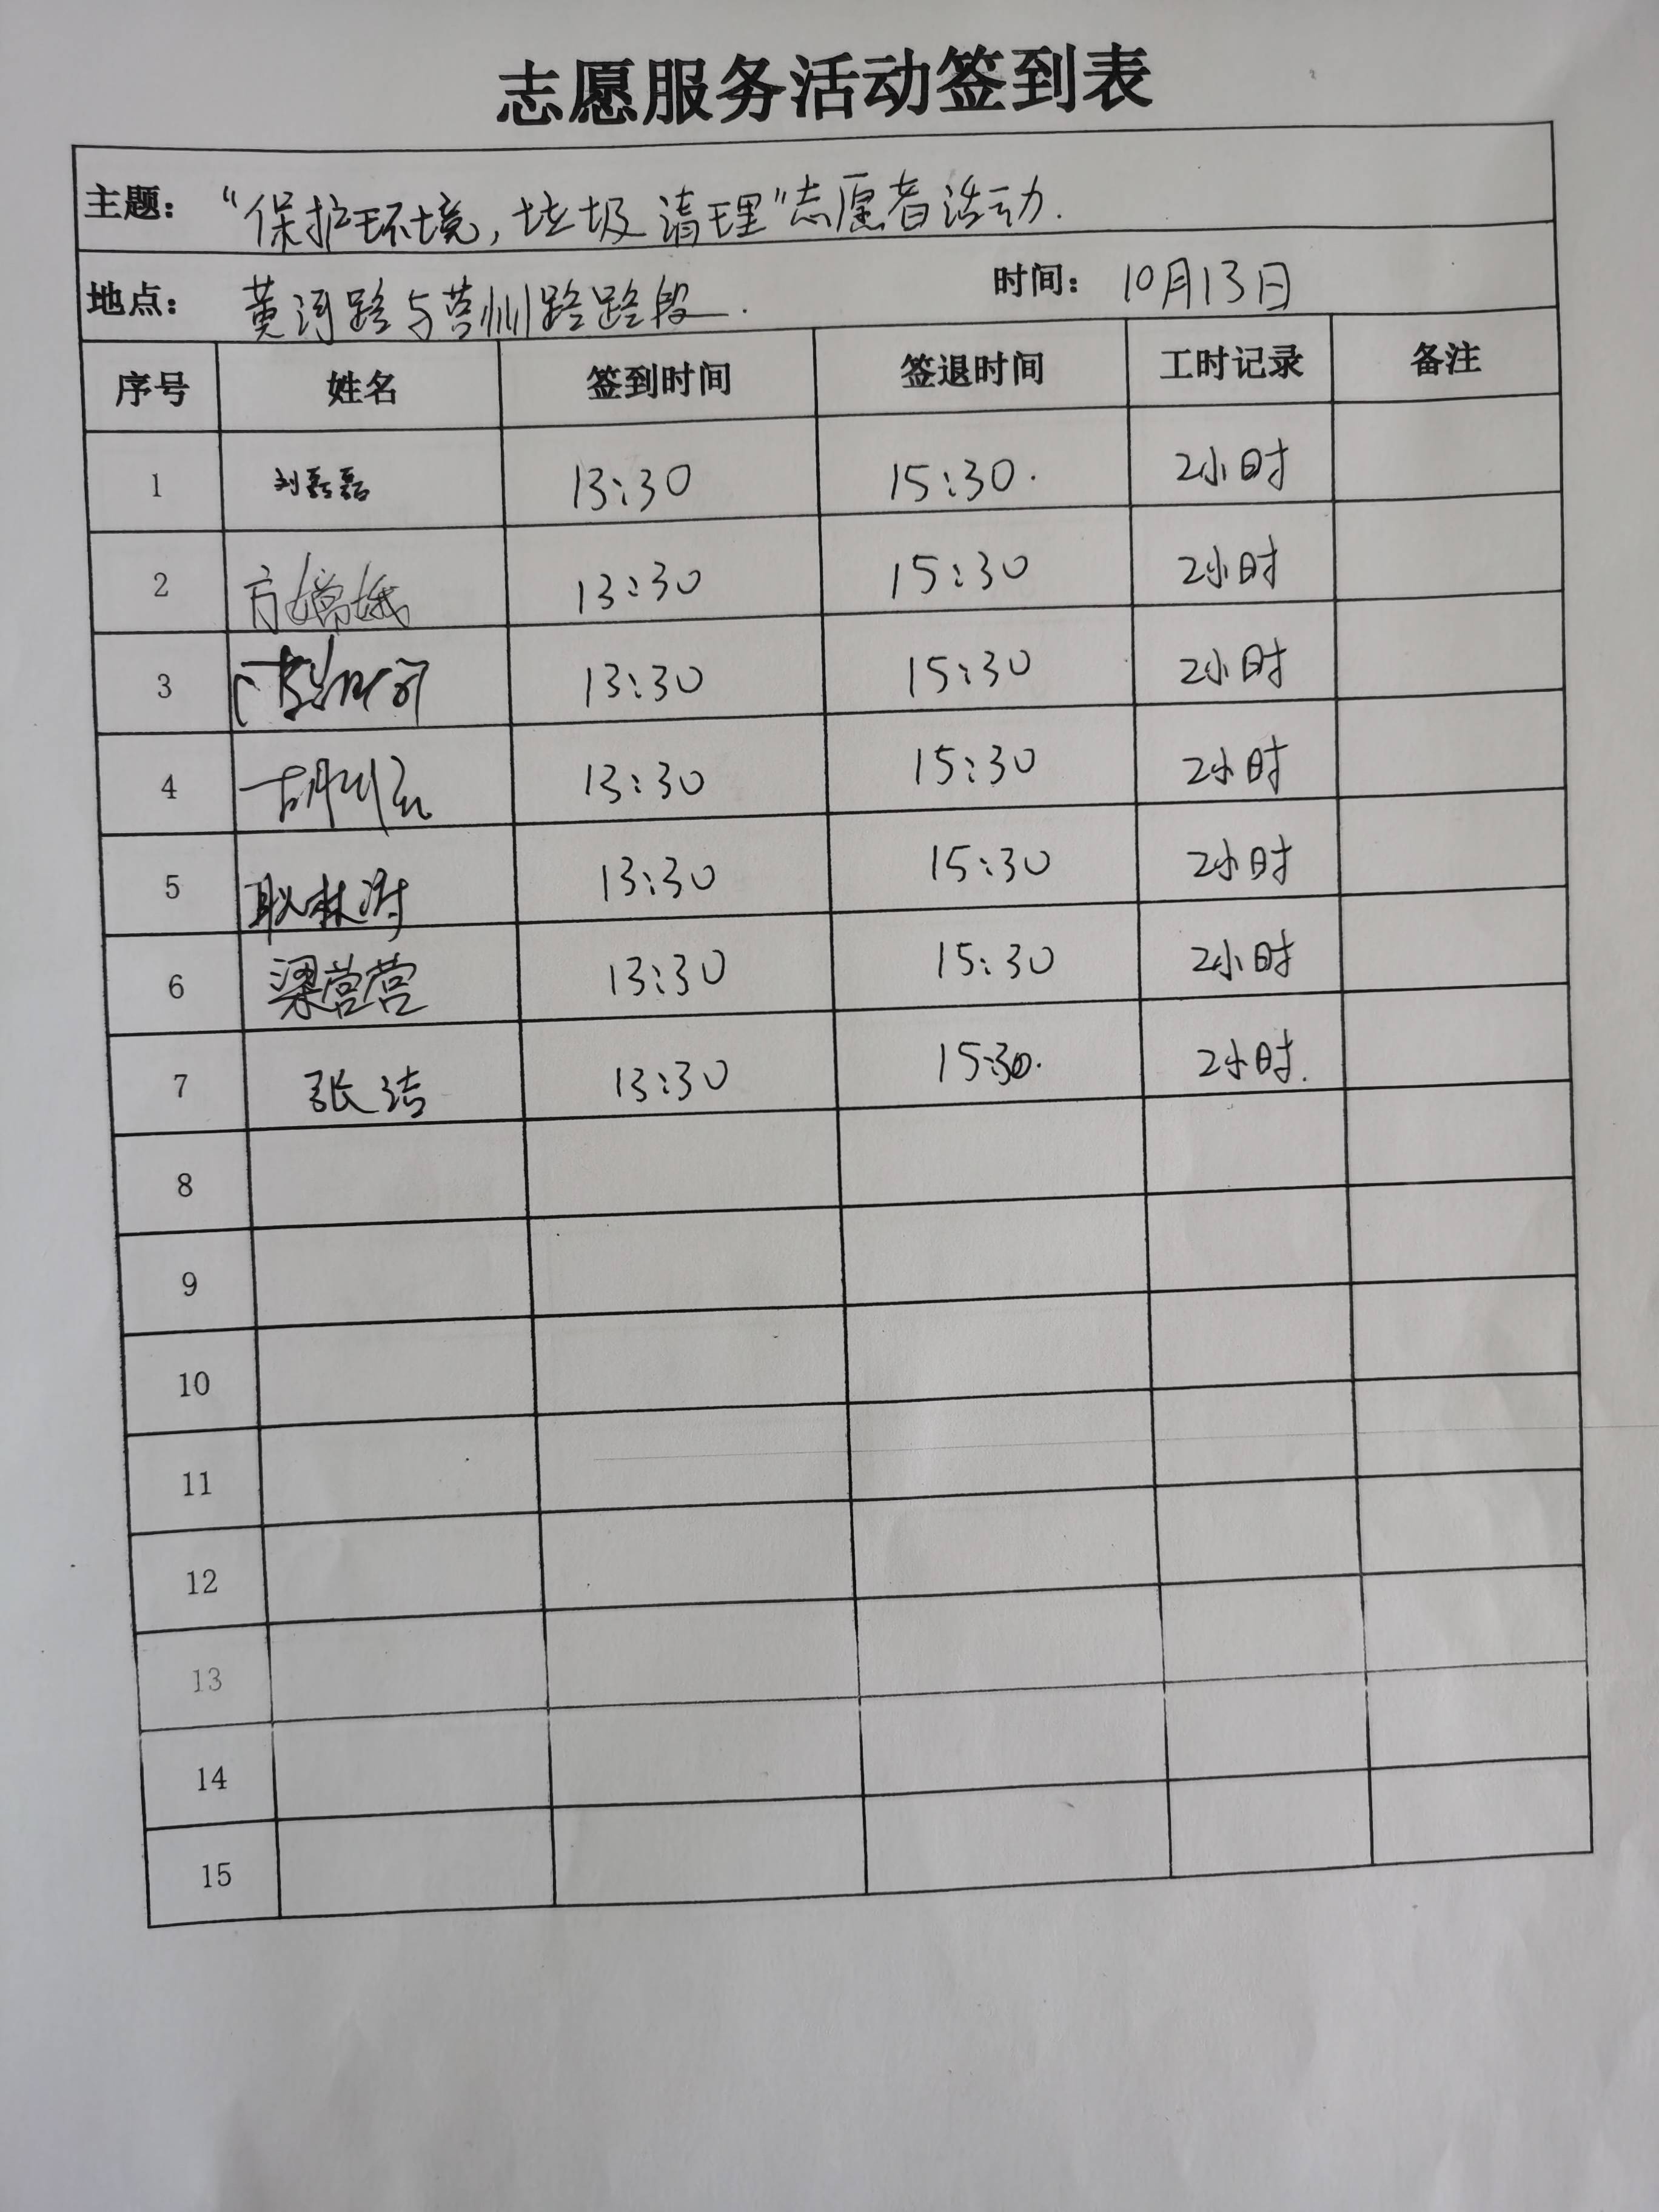 志愿服务活动签到表
主题： “保护环境，垃圾清理”志愿者活动.
地点： 黄河路与营州路路段. 时间： 10月13日
序号 姓名 签到时间 签退时间 工时记录 备注
1 刘磊磊 13:30 15:30. 2小时
2 方嫦娥 13:30 15:30 2小时
3 13:30 15:30 2小时
4 13:30 15:30 2小时
5 耿林涛 13:30 15:30 2小时
6 梁营营 13:30 15:30 2小时
7 张洁 13:30 15:30. 2小时.
8
9
10
11
12
13
14
15